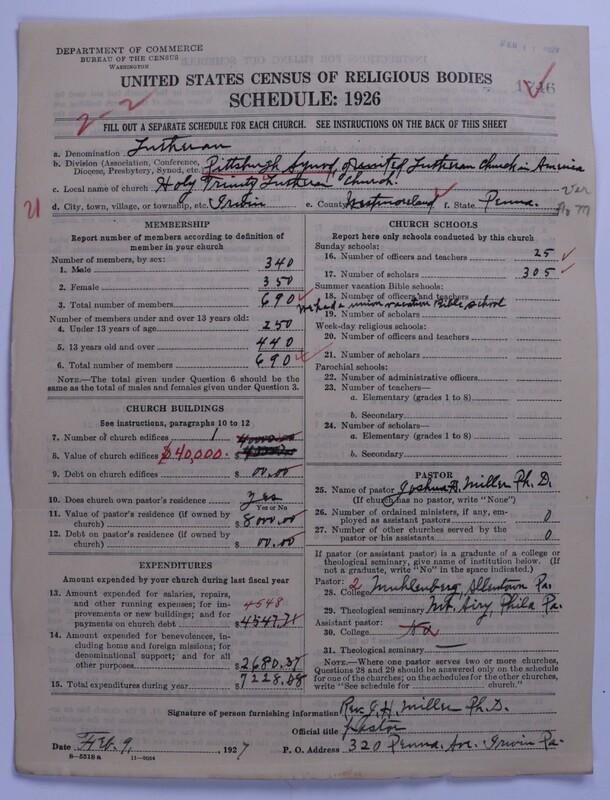 DEPARTMENT OF COMMERCE
BUREAU OF THE CENSUS
WASHINGTON
UNITED STATES CENSUS OF RELIGIOUS BODIES
SCHEDULE: 1926
2-2
FILL OUT A SEPARATE SCHEDULE FOR EACH CHURCH. SEE INSTRUCTIONS ON THE BACK OF THIS SHEET
a. Denomination Lutheran
b. Division (Association, Conference, Diocese, Presbytery, Synod, etc.) Pittsburgh Synod, of United Lutheran Church in America
c. Local name of church Holy Trinity Lutheran Church.
21 d. City, town, village, or township, etc. Irwin e. County Westmoreland f. State Penna.
MEMBERSHIP
Report number of members according to definition of
member in your church
Number of members, by sex:
1. Male 340
2. Female 350
3. Total number of members 690
Number of members under and over 13 years old:
4. Under 13 years of age 250
5. 13 years old and over 440
6. Total number of members 690
NOTE.—The total given under Question 6 should be the
same as the total of males and females given under Question 3.
CHURCH BUILDINGS
See instructions, paragraphs 10 to 12
7. Number of church edifices 1
8. Value of church edifices $40,000.
9. Debt on church edifices $ 00.00
10. Does church own pastor's residence Yes
Yes or No
11. Value of pastor's residence (if owned by
church) $ 8000.00
12. Debt on pastor's residence (if owned by
church) $ 00.00
EXPENDITURES
Amount expended by your church during last fiscal year
13. Amount expended for salaries, repairs,
and other running expenses; for im-
provements or new buildings; and for
payments on church debt 4548 $ 4547.71
14. Amount expended for benevolences,
including home and foreign missions; for
denominational support; and for all
other purposes $ 2680.37
15. Total expenditures during year $ 7228.08
CHURCH SCHOOLS
Report here only schools conducted by this church
Sunday schools:
16. Number of officers and teachers 25
17. Number of scholars 305
Summer vacation Bible schools:
18. Number of officers and teachers
we had a union vacation Bible school
19. Number of scholars
Week-day religious schools:
20. Number of officers and teachers
21. Number of scholars
Parochial schools:
22. Number of administrative officers
23. Number of teachers—
a. Elementary (grades 1 to 8)
b. Secondary
24. Number of scholars—
a. Elementary (grades 1 to 8)
b. Secondary
PASTOR
25. Name of pastor Joshua H. Miller Ph. D.
(If church has no pastor, write "None")
26. Number of ordained ministers, if any, em-
ployed as assistant pastors 0
27. Number of other churches served by the
pastor or his assistants 0
If pastor (or assistant pastor) is a graduate of a college or
theological seminary, give name of institution below. (If
not a graduate, write "No" in the space indicated.)
Pastor: 2
28. College Muhlenberg, Allentown Pa.
29. Theological seminary Mt. Airy, Phila Pa.
Assistant pastor:
30. College No
31. Theological seminary —
NOTE.—Where one pastor serves two or more churches,
Questions 28 and 29 should be answered only on the schedule
for one of the churches; on the schedules for the other churches,
write "See schedule for church."
Signature of person furnishing information Rev. J. H. Miller Ph. D.
Official title Pastor
Date Feb. 9, 1927 P. O. Address 320 Penna. Ave. Irwin Pa.
8—5518 a 11—9024